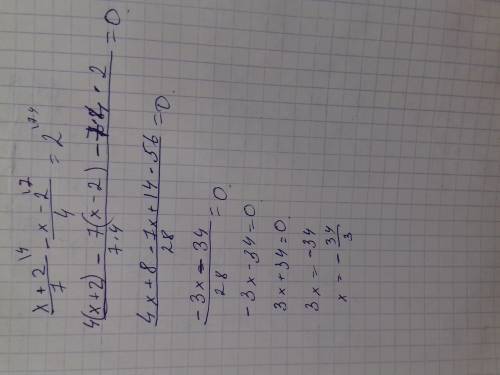 x+2/7 \4 - x-2/4 \7 = 2 \7·4
4(x+2) - 7(x-2) - 2/7·4 = 0.
4x+8-7x+14-56/28 = 0.
-3x-34/28 = 0.
-3x-34=0.
3x+34=0.
3x = -34
x = -34/3